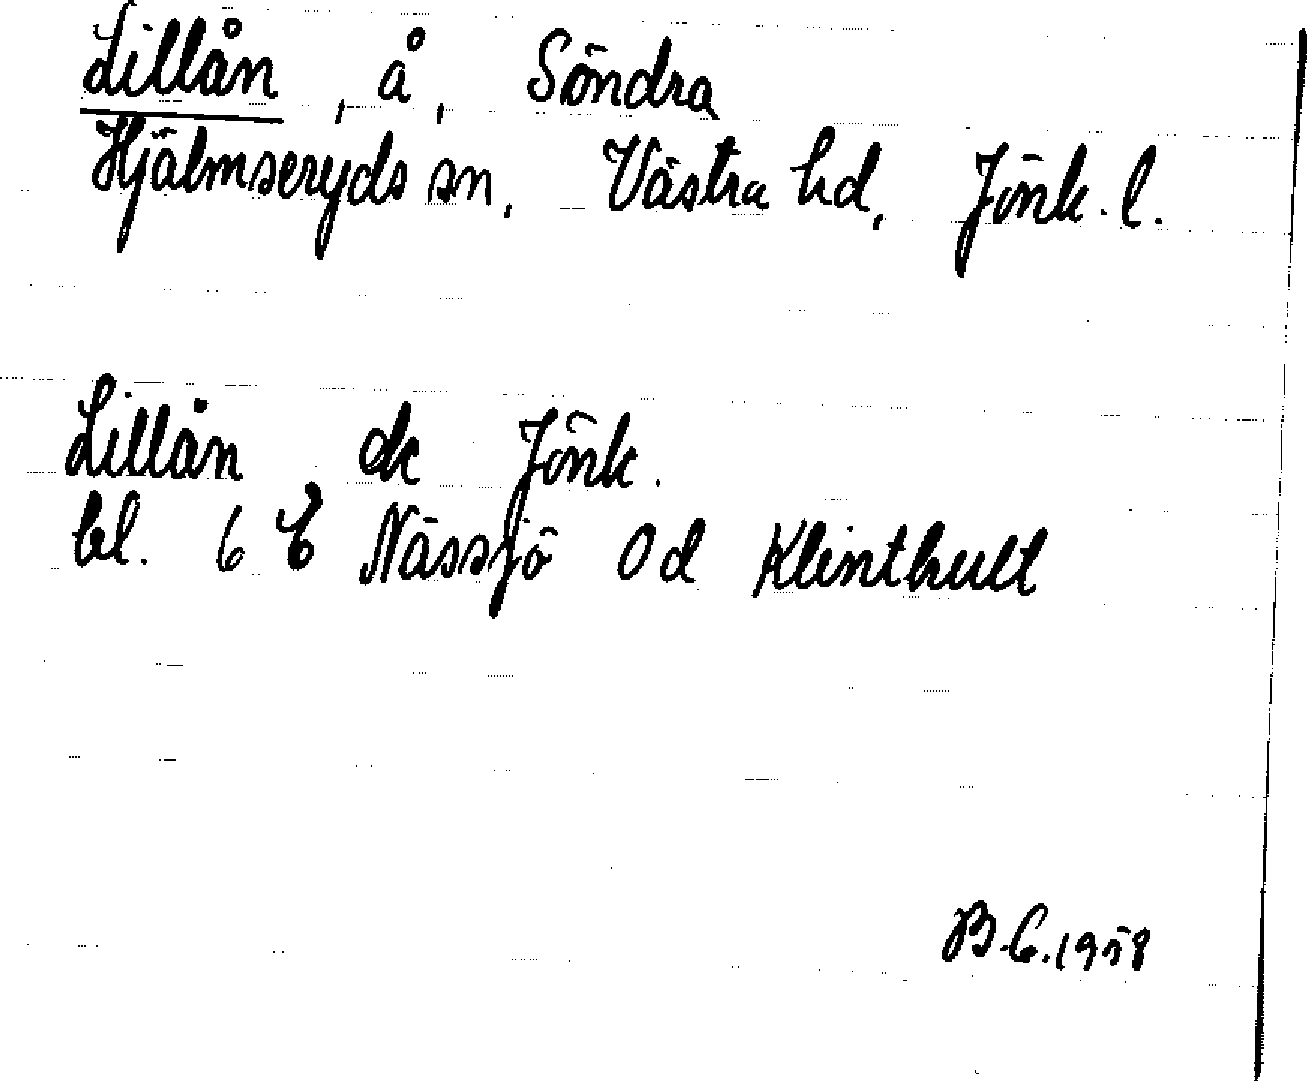 Lillån, å, Södra
Hjälmseryds sn, Västra hd, Jönk. l.
Lillån ek Jönk.
bl. 6 E Nässjö Od Klinthult
B.G. 1958